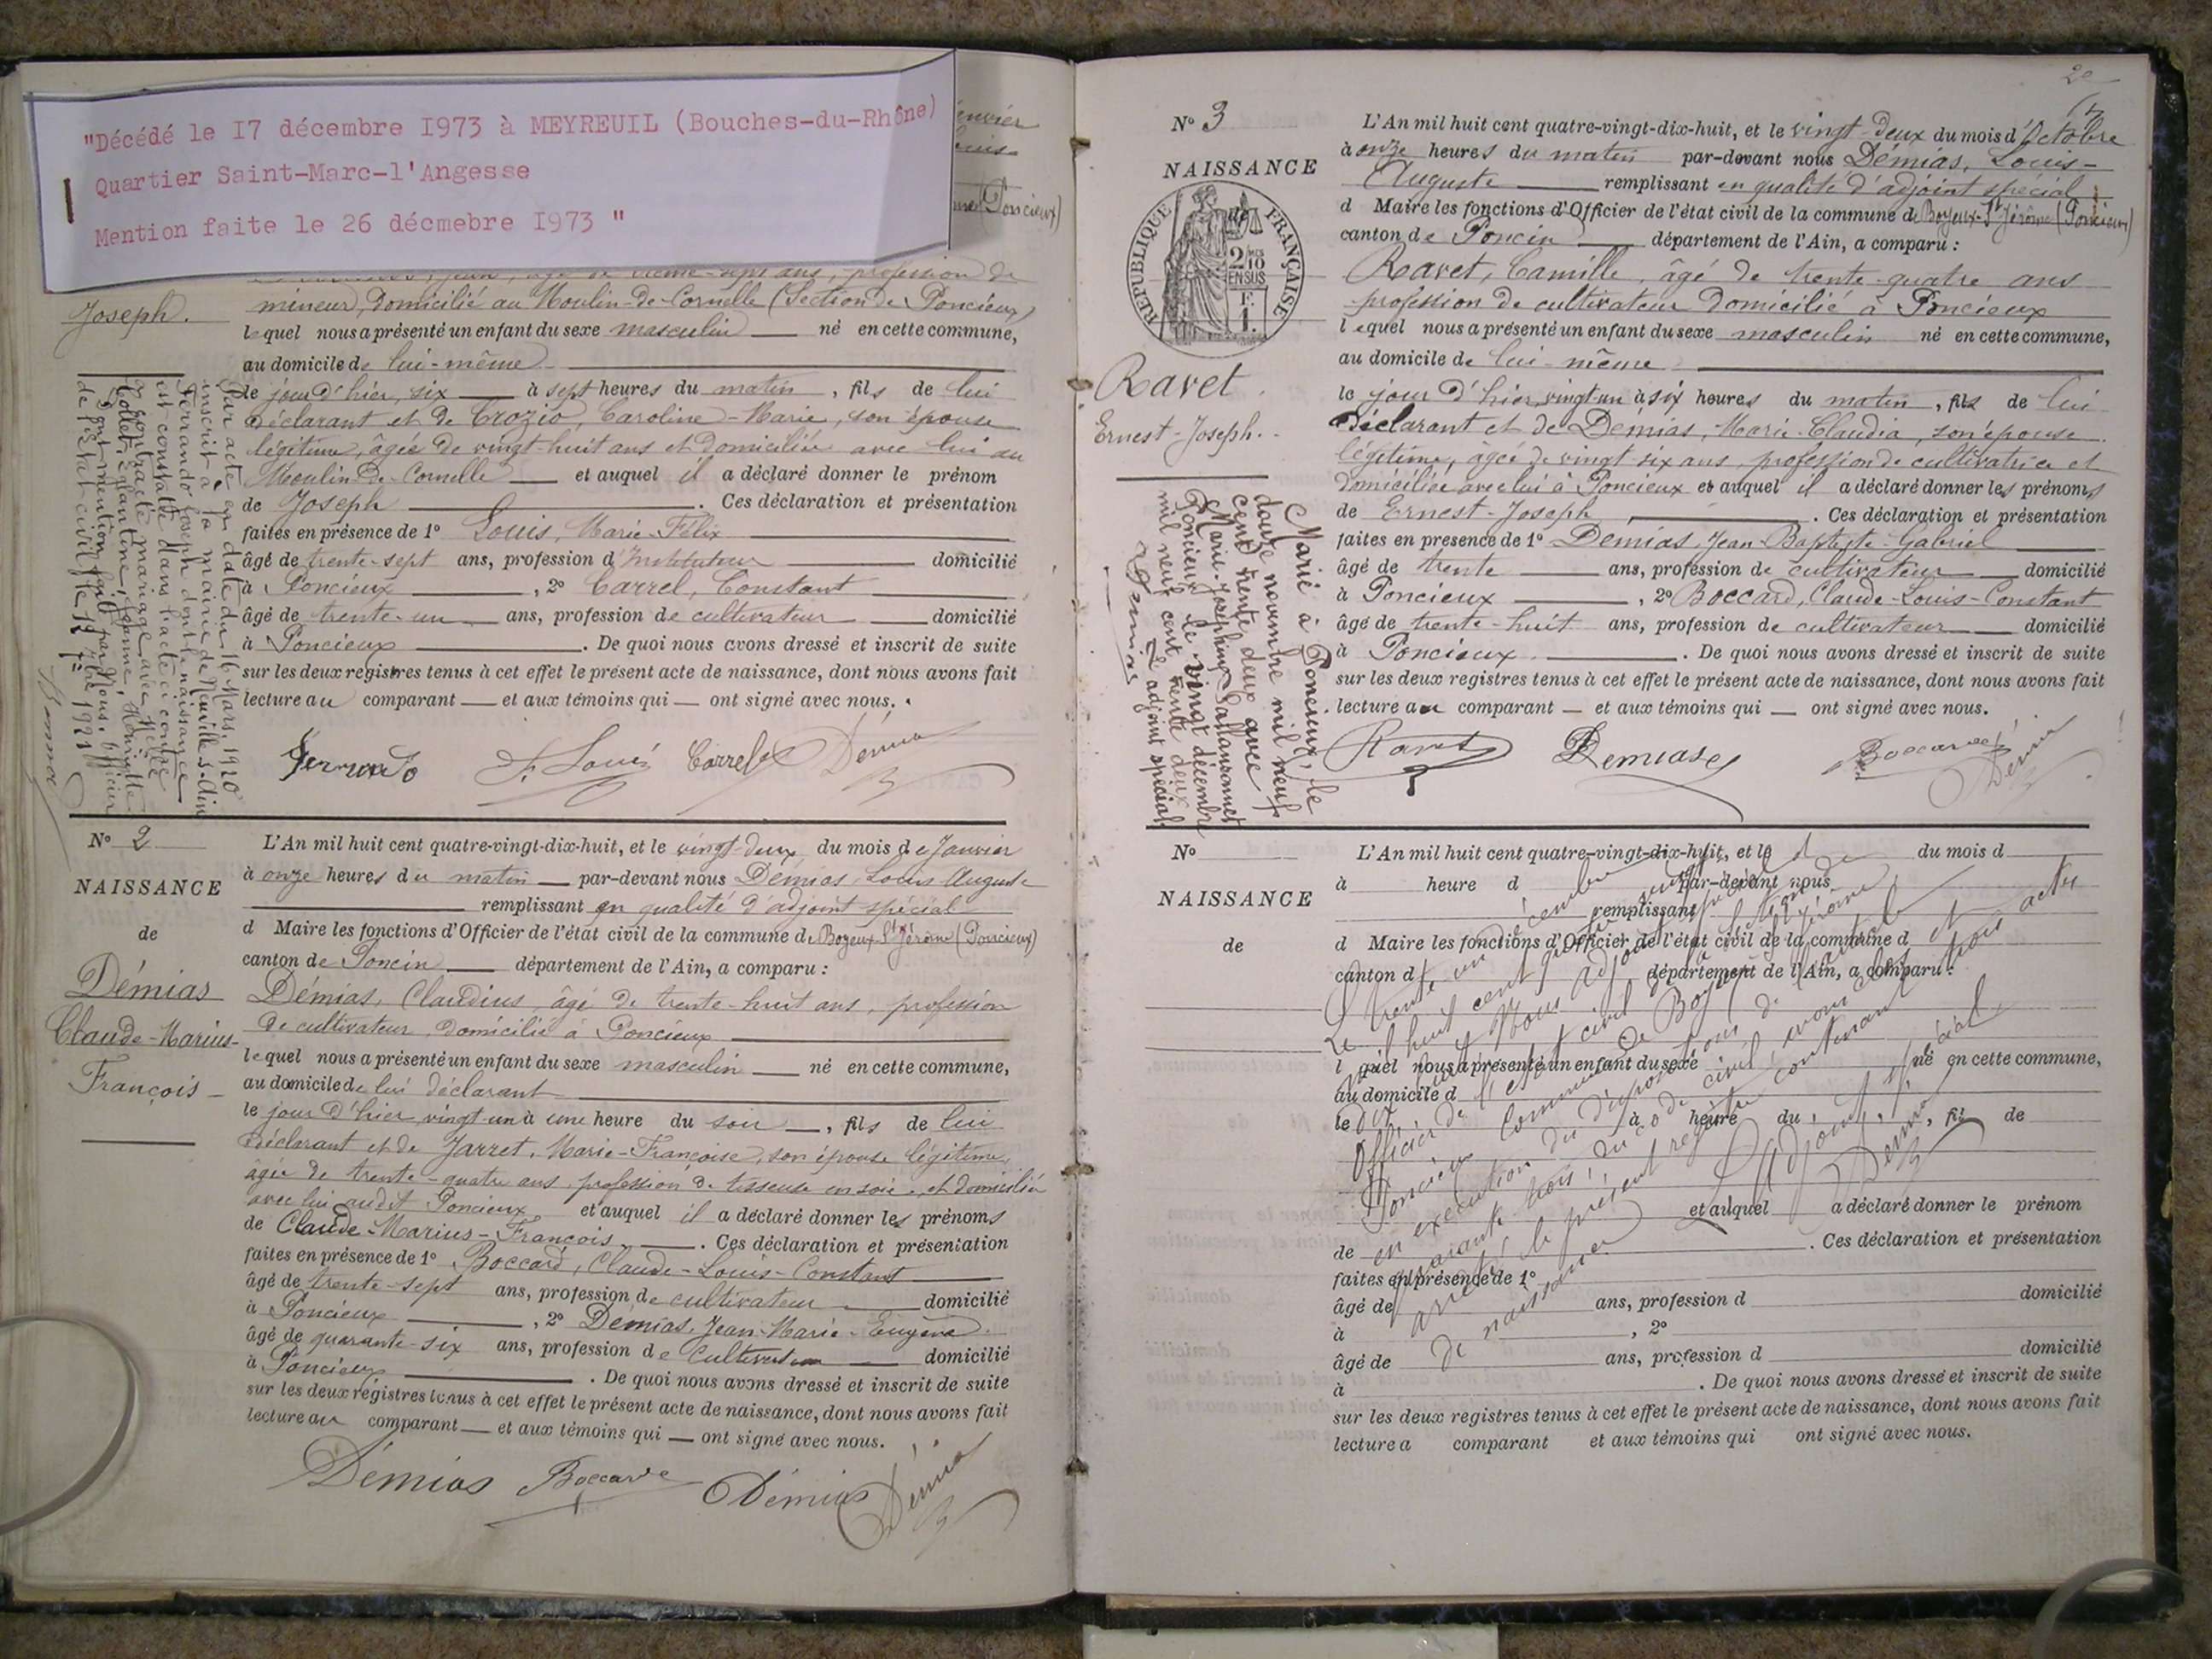 "Décédé le I7 décembre I973 à MEYREUIL (Bouches-du-Rhône)
Quartier Saint-Marc-l'Angesse
Mention faite le 26 décmebre I973 "
(Poncieux)
Joseph.
mineur, domicilié au Moulin-de-Cornelle (Section de Poncieux)
lequel nous a présenté un enfant du sexe masculin né en cette commune,
au domicile de lui-même
le jour d'hier, six à sept heures du matin, fils de lui
déclarant et de Crozio, Caroline-Marie, son épouse
légitime, âgée de vingt-huit ans et domiciliée avec lui au
Moulin-de-Cornelle et auquel il a déclaré donner le prénom
de Joseph. Ces déclaration et présentation
faites en présence de 1° Louis, Marie-Félix
âgé de trente-sept ans, profession d'Instituteur domicilié
à Poncieux, 2° Carrel, Constant
âgé de trente-un ans, profession de cultivateur domicilié
à Poncieux. De quoi nous avons dressé et inscrit de suite
sur les deux registres tenus à cet effet le présent acte de naissance, dont nous avons fait
lecture au comparant et aux témoins qui ont signé avec nous.
Par acte en date du 16 Mars 1920
inscrit à la mairie de Neuville-s-Ain
Ferrando Joseph dont la naissance
est constatée dans l'acte ci contre
a contracté mariage avec Melle
Collet
dont mention faite par Nous, officier
de l'Etat civil, le
Ferrando F. Louis Carrel Demias
N° 2
NAISSANCE
de
Démias
Claude-Marius-
François
L'An mil huit cent quatre-vingt-dix-huit, et le vingt-deux du mois de Janvier
à onze heures du matin par-devant nous Démias, Louis Auguste
remplissant en qualité d'adjoint spécial
d Maire les fonctions d'Officier de l'état civil de la commune de Boyeux-St Jérôme (Poncieux)
canton de Poncin département de l'Ain, a comparu :
Démias, Claudius, âgé de trente-huit ans, profession
de cultivateur, domicilié à Poncieux
lequel nous a présenté un enfant du sexe masculin né en cette commune,
au domicile de lui déclarant
le jour d'hier vingt-un à une heure du soir, fils de lui
déclarant et de Jarret, Marie-Françoise, son épouse légitime,
âgée de trente-quatre ans, profession de tisseuse en soie, et domiciliée
avec lui audit Poncieux et auquel il a déclaré donner les prénoms
de Claude-Marius-François. Ces déclaration et présentation
faites en présence de 1° Boccard, Claude-Louis-Constant
âgé de trente-sept ans, profession de cultivateur domicilié
à Poncieux, 2° Démias, Jean-Marie-Eugène
âgé de quarante-six ans, profession de cultivateur domicilié
à Poncieux. De quoi nous avons dressé et inscrit de suite
sur les deux registres tenus à cet effet le présent acte de naissance, dont nous avons fait
lecture au comparant et aux témoins qui ont signé avec nous.
Démias Boccard Démias Démias
20
N° 3
NAISSANCE
de
REPUBLIQUE FRANÇAISE
2/10 EN SUS
F. 1.
Ravet
Ernest-Joseph.
L'An mil huit cent quatre-vingt-dix-huit, et le vingt-deux du mois d'Octobre
à onze heures du matin par-devant nous Démias, Louis-
Auguste remplissant en qualité d'adjoint spécial
d Maire les fonctions d'Officier de l'état civil de la commune de Boyeux-St Jérôme (Poncieux)
canton de Poncin département de l'Ain, a comparu :
Ravet, Camille, âgé de trente-quatre ans
profession de cultivateur domicilié à Poncieux
lequel nous a présenté un enfant du sexe masculin né en cette commune,
au domicile de lui-même
le jour d'hier, vingt-un à six heures du matin, fils de lui
déclarant et de Démias, Marie-Claudia, son épouse
légitime, âgée de vingt-six ans, profession de cultivatrice et
domiciliée avec lui à Poncieux et auquel il a déclaré donner les prénoms
de Ernest-Joseph. Ces déclaration et présentation
faites en présence de 1° Demias Jean-Baptiste-Gabriel
âgé de trente ans, profession de cultivateur domicilié
à Poncieux, 2° Boccard, Claude-Louis-Constant
âgé de trente-huit ans, profession de cultivateur domicilié
à Poncieux. De quoi nous avons dressé et inscrit de suite
sur les deux registres tenus à cet effet le présent acte de naissance, dont nous avons fait
lecture au comparant et aux témoins qui ont signé avec nous.
Marié à Poncieux, le
douze novembre mil neuf
cent trente deux avec
Marie-Josephine
Poncieux le vingt décembre
mil neuf cent trente deux
L'adjoint spécial
Demias
Ravet Demias Boccard Demias
N°
NAISSANCE
de
L'An mil huit cent quatre-vingt-dix-huit, et le du mois d
à heure d par-devant nous
remplissant
d Maire les fonctions d'Officier de l'état civil de la commune d
canton d département de l'Ain, a comparu :
l quel nous a présenté un enfant du sexe né en cette commune,
au domicile d
le à heure du, fil de
et auquel a déclaré donner le prénom
de. Ces déclaration et présentation
faites en présence de 1°
âgé de ans, profession d domicilié
à, 2°
âgé de ans, profession d domicilié
à. De quoi nous avons dressé et inscrit de suite
sur les deux registres tenus à cet effet le présent acte de naissance, dont nous avons fait
lecture a comparant et aux témoins qui ont signé avec nous.
Le trente un décembre
mil huit cent quatre vingt
dix huit Nous adjoint spécial
Officier de l'état civil de la section de
Poncieux commune de Boyeux St Jérôme
en exécution des dispositions de l'article
quarante trois du code civil, avons clos et
arrêté le présent registre contenant trois actes
de naissance
L'adjoint spécial
Demias